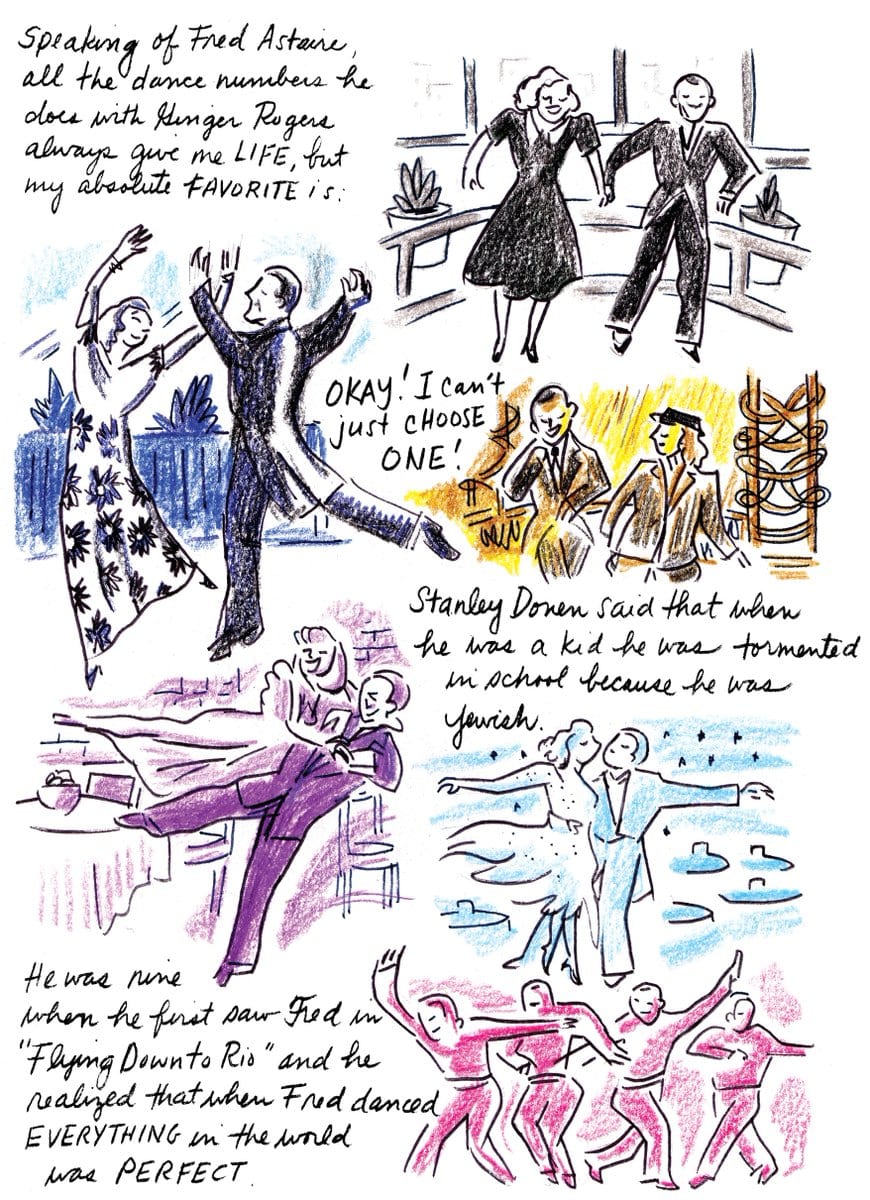 Speaking of Fred Astaire,
all the dance numbers he
does with Ginger Rogers
always give me LIFE, but
my absolute FAVORITE is:
OKAY! I can't
just CHOOSE
ONE!
Stanley Donen said that when
he was a kid he was tormented
in school because he was
Jewish.
He was nine
when he first saw Fred in
"Flying Down to Rio" and he
realized that when Fred danced
EVERYTHING in the world
was PERFECT.